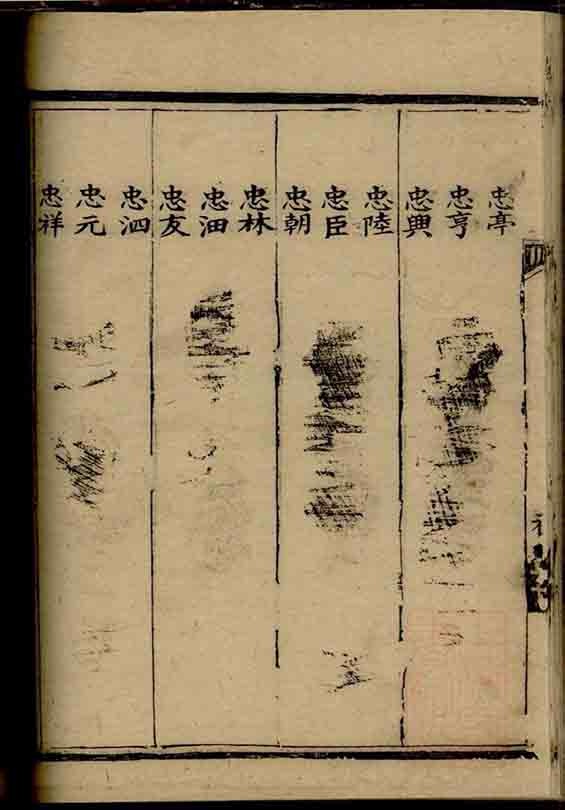 忠亭
忠亨
忠興
忠陸
忠臣
忠朝
忠林
忠油
忠友
忠泗
忠元
忠祥